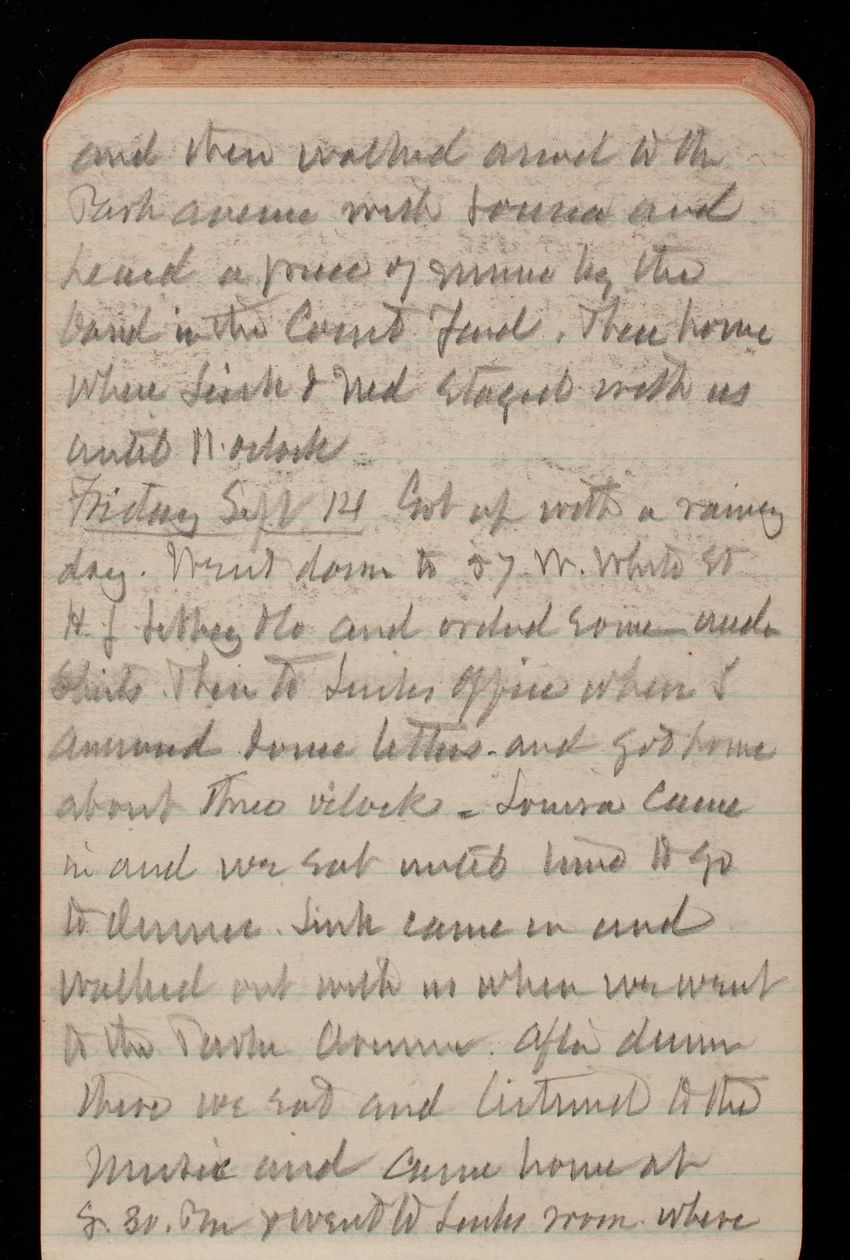 and then walked around to the
Park avenue with Louisa and
heard a piece of music by the
band in the Court Yard. Then home
where Link & Ned stayed with us
until 11 oclock
Friday Sept 14 Got up with a rainey
day. Went down to 87 W. White St
H. J. &Co and ordered some under
Shirts. Then to Links office when I
answered some letters. and got home
about three oclock. Louisa came
in and we sat until time to go
to dinner. Link came in and
walked out with us when we went
to the Parke Avenue. After dinner
there we sat and listened to the
Music and came home at
8.30. Pm & went to Links room where